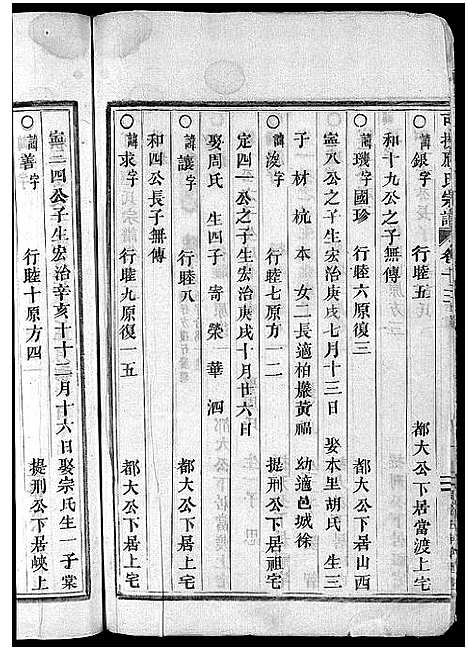 ○諱銀字 行睦五 都大公下居當渡上宅
和十九公之子無傳
○諱璣字國珍 行睦六原復三 都大公下居山西
寧八公之子生宏治庚戌七月十三日 娶本里胡氏 生三
子 材 杭 本 女二長適柏巖黃福 幼適邑城徐
○諱浚字 行睦七原方一二 提刑公下居祖宅
定四一公之子生宏治庚戌十月廿六日
娶周氏 生四子 寄 榮 華 泗
○諱讓字 行睦八 都大公下居上宅
和四公長子無傳
○諱求字 行睦九原復一五 都大公下居上宅
寧二四公子生宏治辛亥十二月十六日娶宗氏生一子棠
○諱善字 行睦十原方四 提刑公下居峽上